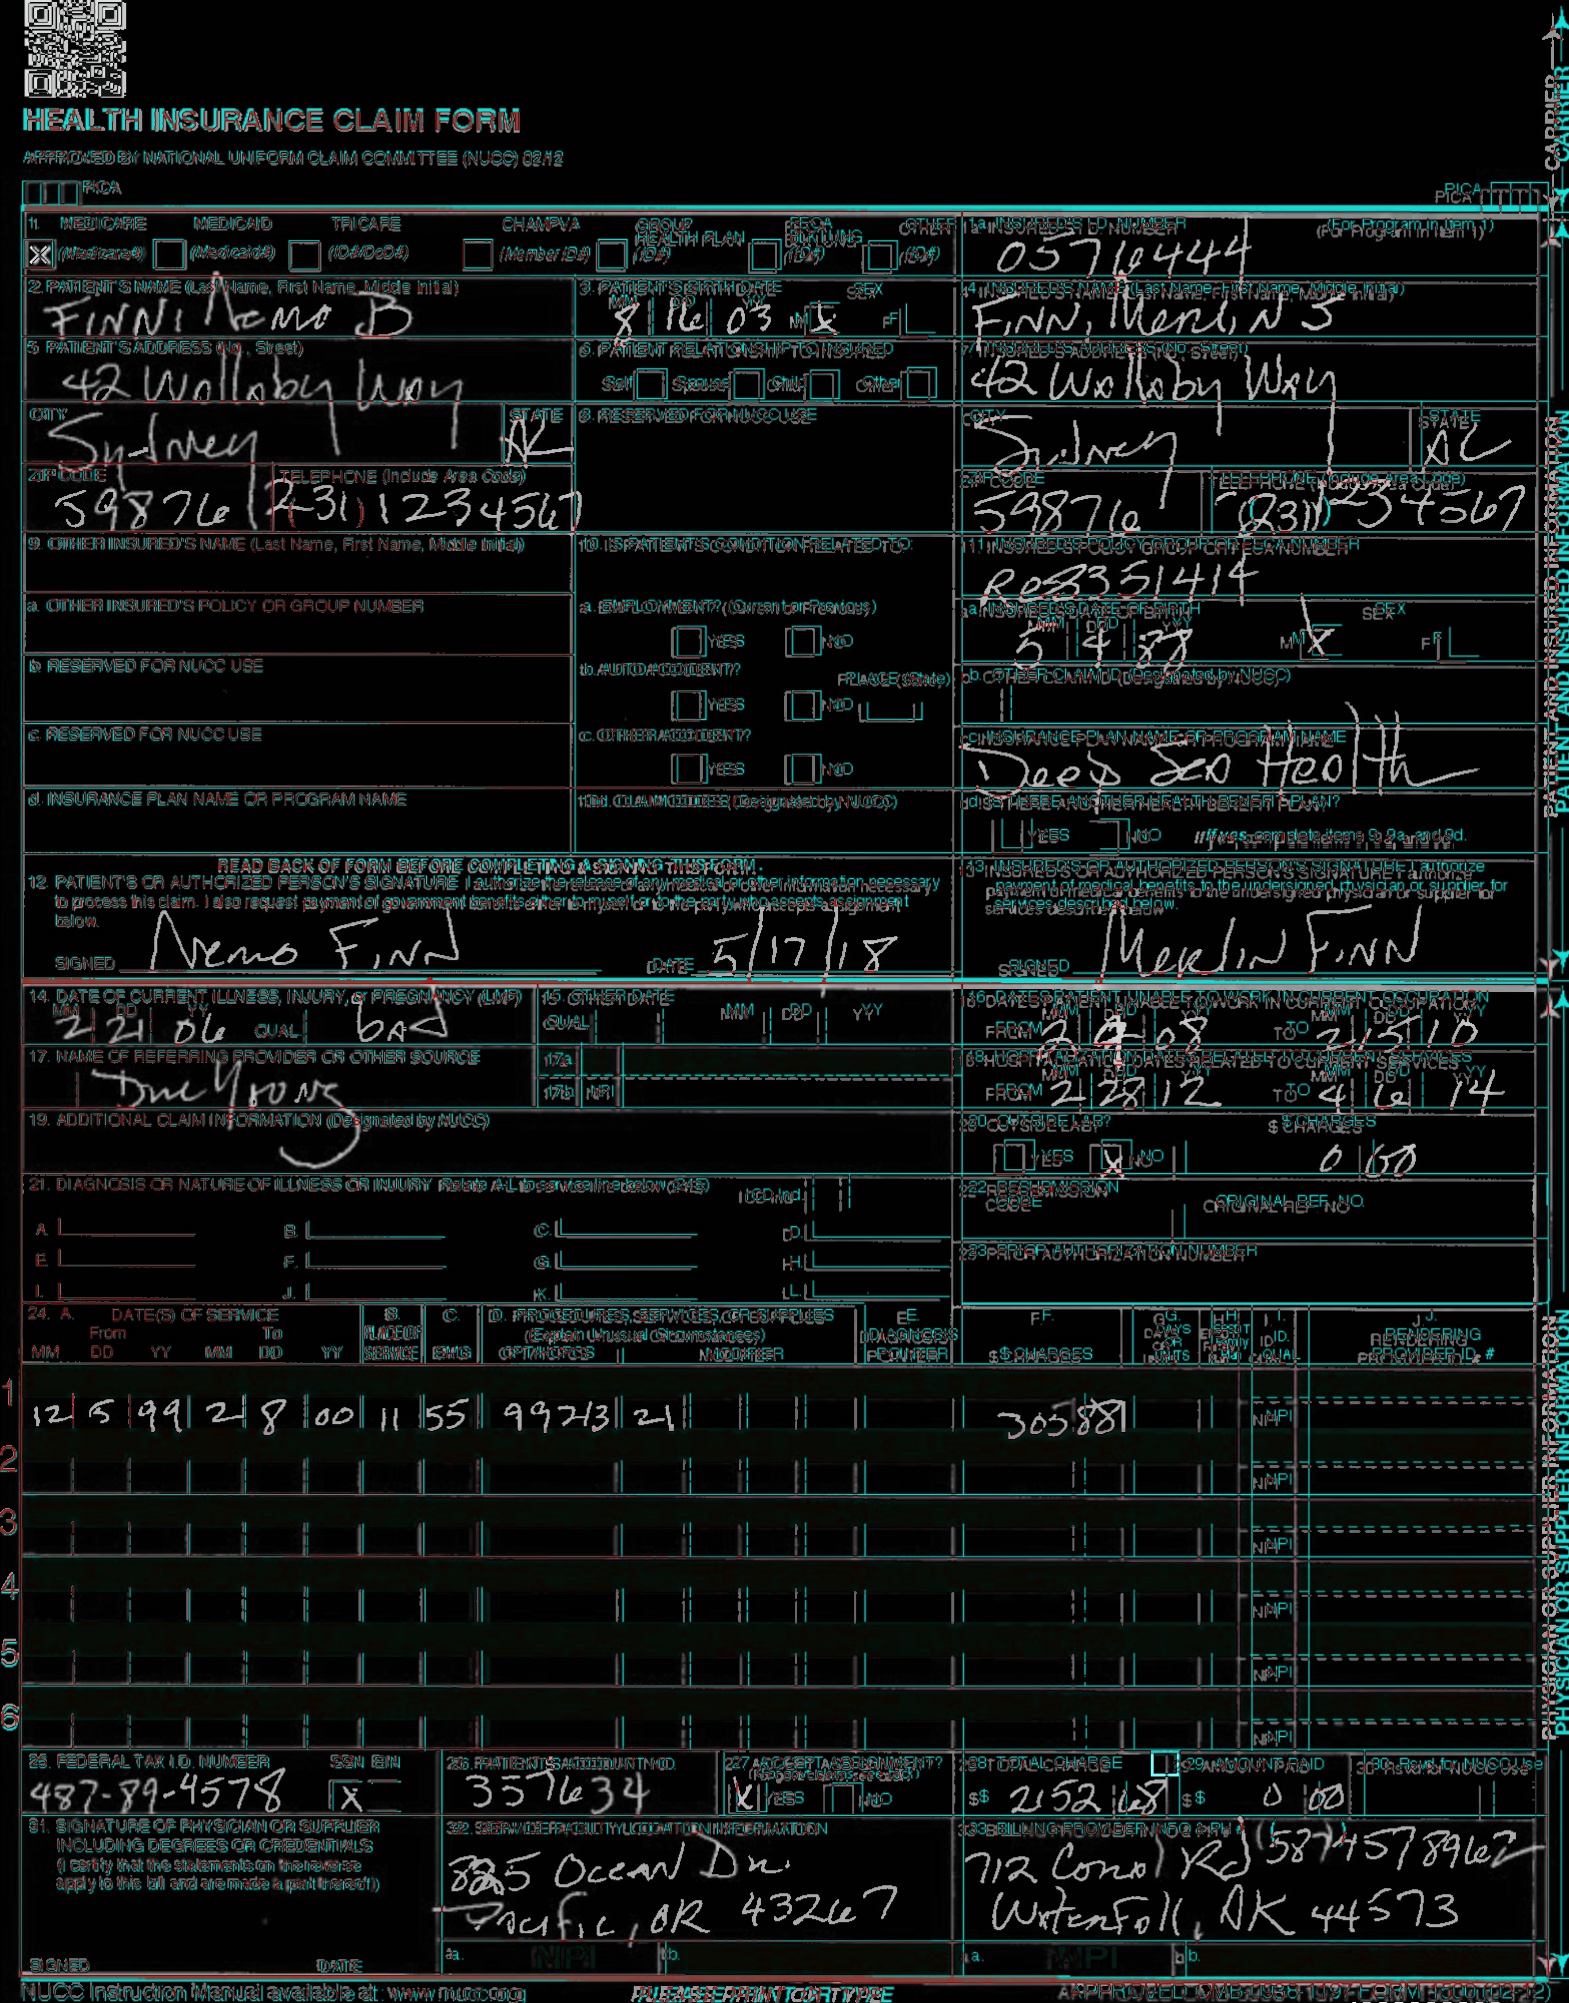 HEALTH INSURANCE CLAIM FORM
APPROVED BY NATIONAL UNIFORM CLAIM COMMITTEE (NUCC) 02/12
PICA PICA
CARRIER
1. MEDICARE MEDICAID TRICARE CHAMPVA GROUP HEALTH PLAN FECA OTHER
X (Medicare#) (Medicaid#) (ID#/DoD#) (Member ID#) (ID#) (ID#) (ID#)
1a. INSURED'S I.D. NUMBER (For Program in Item 1)
05716444
2. PATIENT'S NAME (Last Name, First Name, Middle Initial)
FINN, Nemo B
3. PATIENT'S BIRTH DATE SEX
MM DD YY
8 16 03 M X F
4. INSURED'S NAME (Last Name, First Name, Middle Initial)
FINN, Merlin S
5. PATIENT'S ADDRESS (No., Street)
42 Wallaby Way
6. PATIENT RELATIONSHIP TO INSURED
Self Spouse Child Other
7. INSURED'S ADDRESS (No., Street)
42 Wallaby Way
CITY STATE
Sydney AK
8. RESERVED FOR NUCC USE
CITY STATE
Sydney
ZIP CODE TELEPHONE (Include Area Code)
59876 (231) 1234567
ZIP CODE TELEPHONE (Include Area Code)
59876 (231) 1234567
9. OTHER INSURED'S NAME (Last Name, First Name, Middle Initial)
10. IS PATIENT'S CONDITION RELATED TO:
11. INSURED'S POLICY GROUP OR FECA NUMBER
a. OTHER INSURED'S POLICY OR GROUP NUMBER
a. EMPLOYMENT? (Current or Previous)
YES NO
a. INSURED'S DATE OF BIRTH SEX
MM DD YY
5 4 88 M X F
b. RESERVED FOR NUCC USE
b. AUTO ACCIDENT? PLACE (State)
YES NO
b. OTHER CLAIM ID (Designated by NUCC)
c. RESERVED FOR NUCC USE
c. OTHER ACCIDENT?
YES NO
c. INSURANCE PLAN NAME OR PROGRAM NAME
Deep Sea Health
d. INSURANCE PLAN NAME OR PROGRAM NAME
10d. CLAIM CODES (Designated by NUCC)
d. IS THERE ANOTHER HEALTH BENEFIT PLAN?
YES NO If yes, complete items 9, 9a, and 9d.
READ BACK OF FORM BEFORE COMPLETING & SIGNING THIS FORM.
12. PATIENT'S OR AUTHORIZED PERSON'S SIGNATURE I authorize the release of any medical or other information necessary
to process this claim. I also request payment of government benefits either to myself or to the party who accepts assignment
below.
SIGNED Nemo FINN DATE 5/17/18
13. INSURED'S OR AUTHORIZED PERSON'S SIGNATURE I authorize
payment of medical benefits to the undersigned physician or supplier for
services described below.
SIGNED Merlin FINN
PATIENT AND INSURED INFORMATION
14. DATE OF CURRENT ILLNESS, INJURY, or PREGNANCY (LMP)
MM DD YY
2 21 06 QUAL. bad
15. OTHER DATE
QUAL. MM DD YY
16. DATES PATIENT UNABLE TO WORK IN CURRENT OCCUPATION
MM DD YY MM DD YY
FROM 2 08 TO 2 15 10
17. NAME OF REFERRING PROVIDER OR OTHER SOURCE
Young
17a.
17b. NPI
18. HOSPITALIZATION DATES RELATED TO CURRENT SERVICES
MM DD YY MM DD YY
FROM 2 28 12 TO 4 6 14
19. ADDITIONAL CLAIM INFORMATION (Designated by NUCC)
20. OUTSIDE LAB? $ CHARGES
YES X NO 0 00
21. DIAGNOSIS OR NATURE OF ILLNESS OR INJURY Relate A-L to service line below (24E) ICD Ind.
A. B. C. D.
E. F. G. H.
I. J. K. L.
22. RESUBMISSION CODE ORIGINAL REF. NO.
23. PRIOR AUTHORIZATION NUMBER
24. A. DATE(S) OF SERVICE B. C. D. PROCEDURES, SERVICES, OR SUPPLIES E. F. G. H. I. J.
From To PLACE OF (Explain Unusual Circumstances) DIAGNOSIS DAYS OR UNITS ID. RENDERING
MM DD YY MM DD YY SERVICE EMG CPT/HCPCS MODIFIER POINTER $ CHARGES QUAL. PROVIDER ID. #
1 12 5 99 2 8 00 11 55 99213 21 305 88 NPI
2 NPI
3 NPI
4 NPI
5 NPI
6 NPI
PHYSICIAN OR SUPPLIER INFORMATION
25. FEDERAL TAX I.D. NUMBER SSN EIN
487-89-4578 X
26. PATIENT'S ACCOUNT NO.
357634
27. ACCEPT ASSIGNMENT?
X YES NO
28. TOTAL CHARGE
$ 2152 68
29. AMOUNT PAID
$ 0 00
30. Rsvd for NUCC Use
31. SIGNATURE OF PHYSICIAN OR SUPPLIER
INCLUDING DEGREES OR CREDENTIALS
(I certify that the statements on the reverse
apply to this bill and are made a part thereof.)
SIGNED DATE
32. SERVICE FACILITY LOCATION INFORMATION
Ocean Dr.
Pacific, OR 43267
a. NPI b.
33. BILLING PROVIDER INFO & PH #
712 Coral Rd
Waterfall, AK 44573
a. NPI b.
NUCC Instruction Manual available at: www.nucc.org
PLEASE PRINT OR TYPE